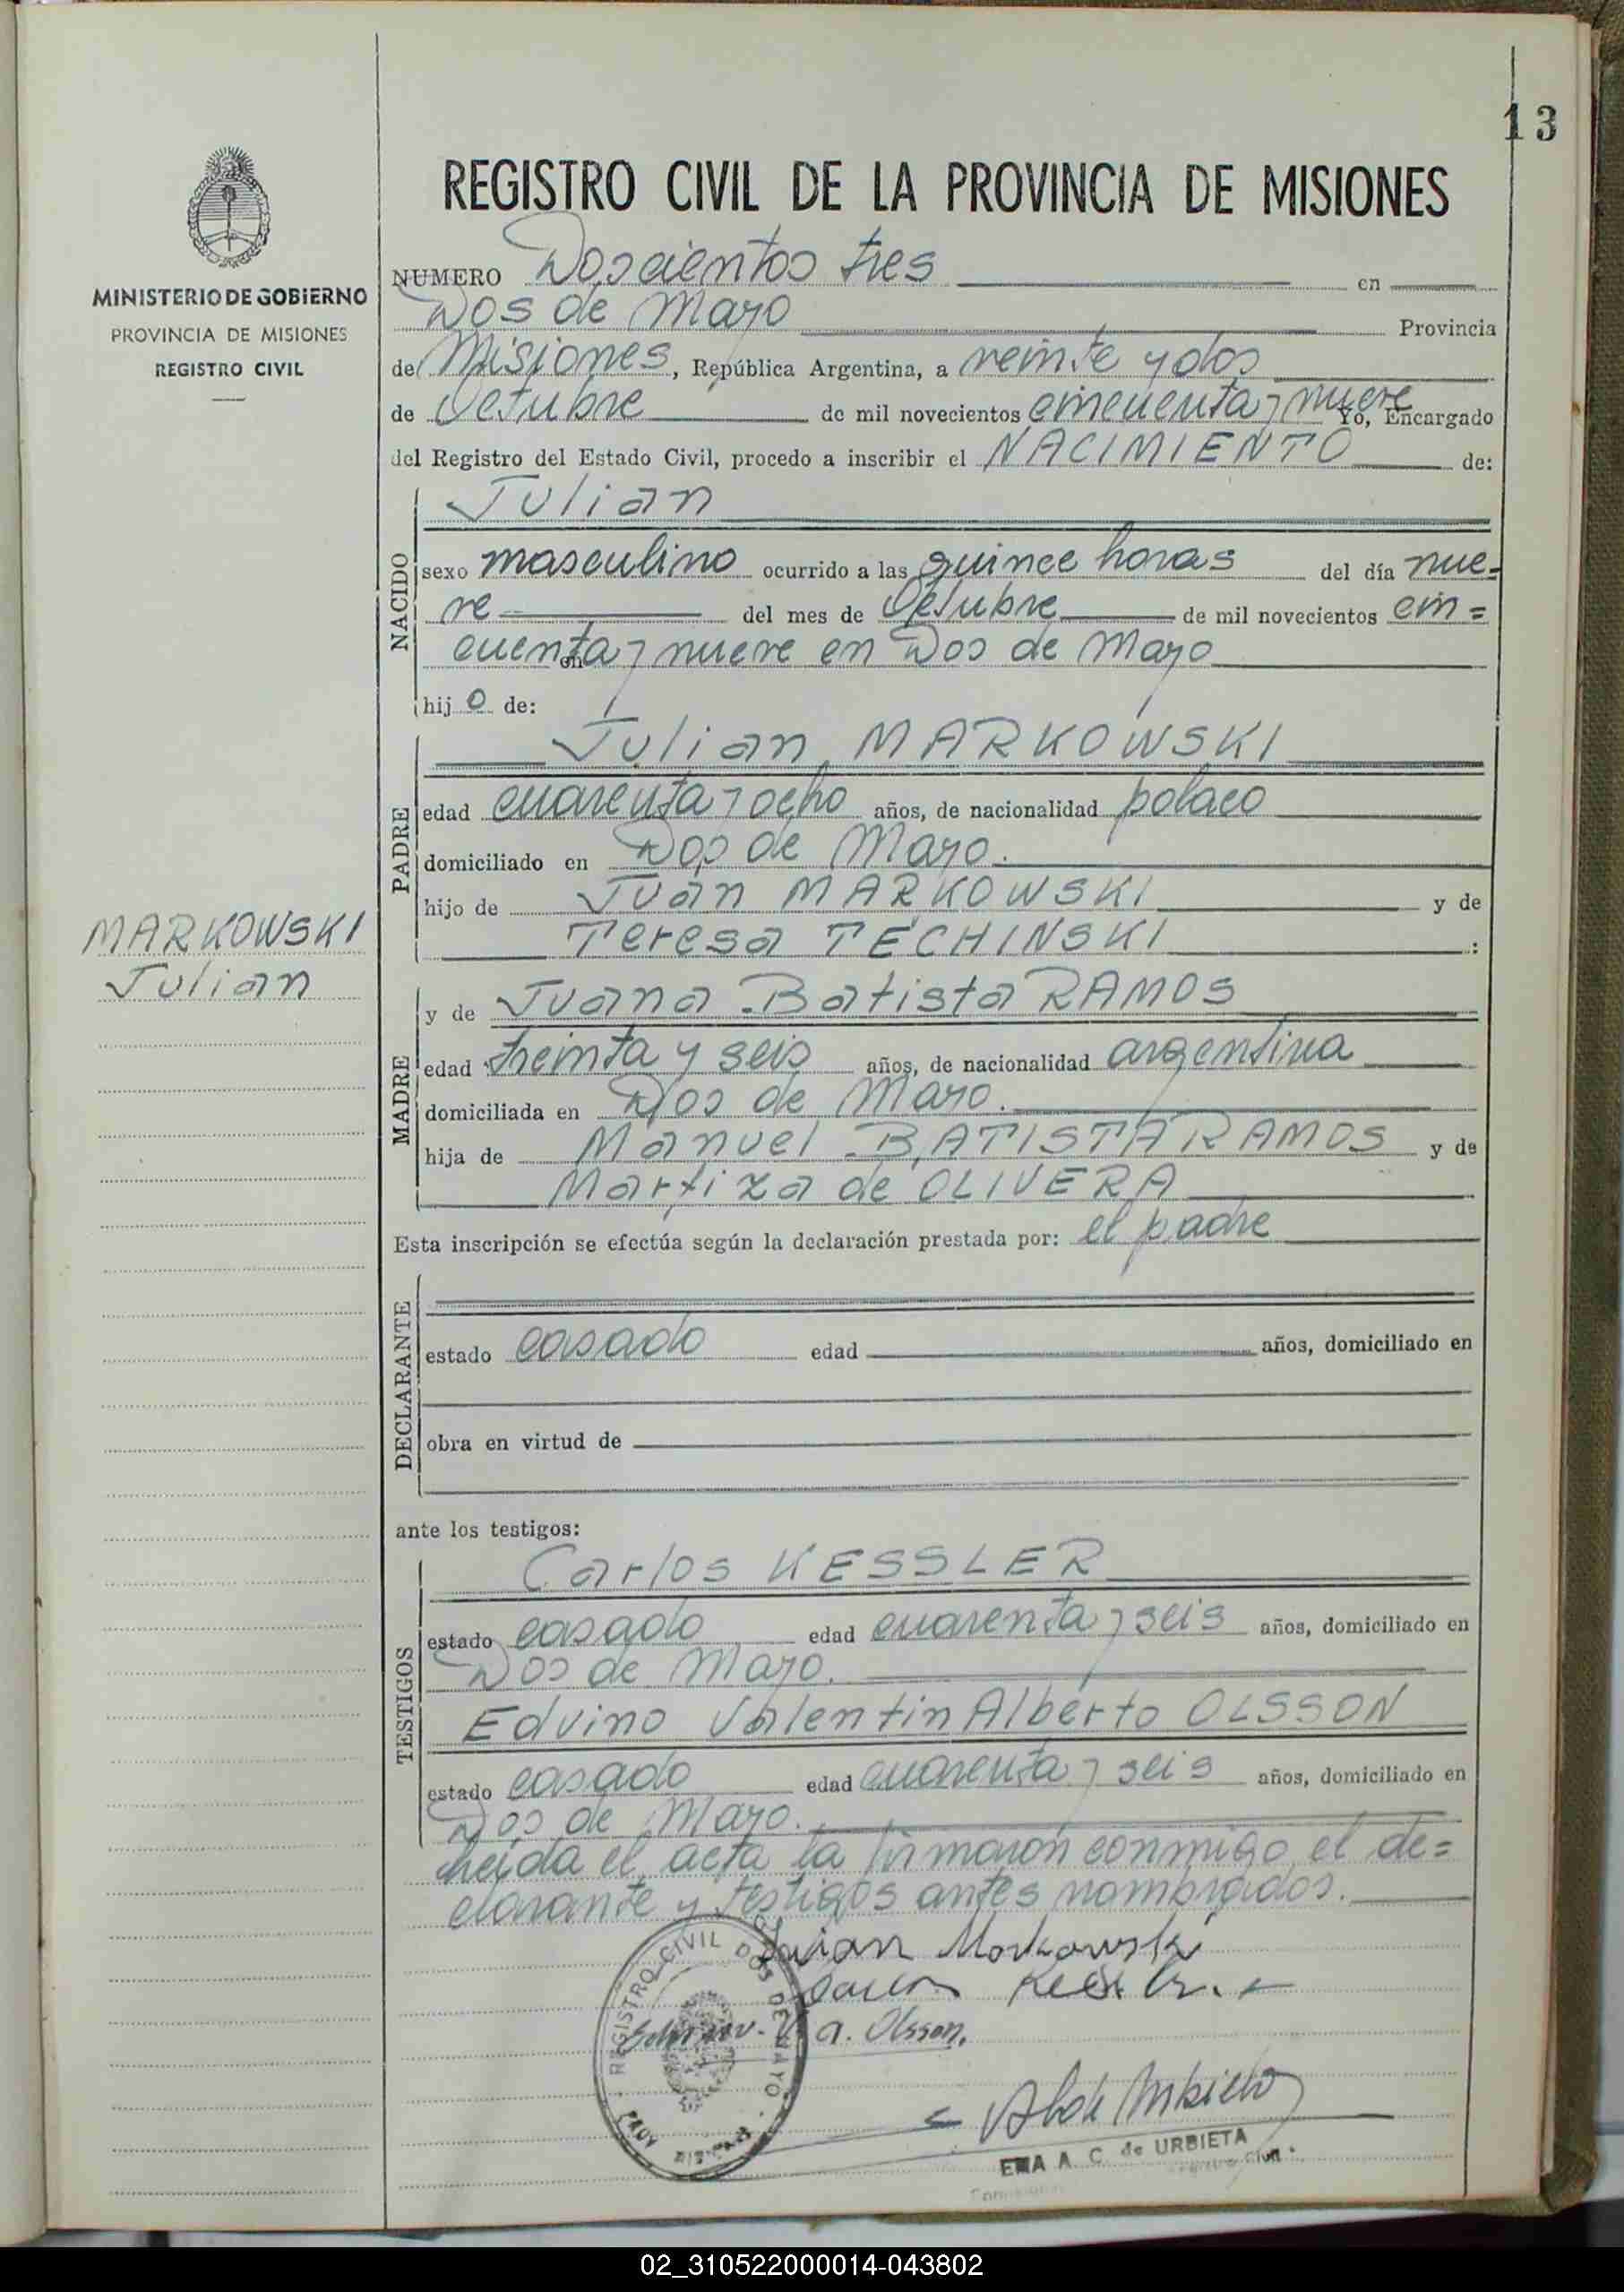 13
MINISTERIO DE GOBIERNO
PROVINCIA DE MISIONES
REGISTRO CIVIL
MARKOWSKI
Julian
REGISTRO CIVIL DE LA PROVINCIA DE MISIONES
NUMERO Doscientos tres en
Dos de Mayo Provincia
de Misiones, República Argentina, a veinte y dos
de Octubre de mil novecientos cincuenta y nueve Yo, Encargado
del Registro del Estado Civil, procedo a inscribir el NACIMIENTO de:
NACIDO
Julian
sexo masculino ocurrido a las quince horas del día nue=
ve del mes de Octubre de mil novecientos cin=
cuenta y nueve en Dos de Mayo
en
hij o de:
PADRE
Julian MARKOWSKI
edad cuarenta y ocho años, de nacionalidad polaco
domiciliado en Dos de Mayo.
hijo de Juan MARKOWSKI y de
Teresa TECHINSKI :
MADRE
y de Juana Batista RAMOS
edad treinta y seis años, de nacionalidad argentina
domiciliada en Dos de Mayo.
hija de Manuel BATISTA RAMOS y de
Martiza de OLIVERA
Esta inscripción se efectúa según la declaración prestada por: el padre
DECLARANTE
estado casado edad años, domiciliado en
obra en virtud de
ante los testigos:
TESTIGOS
Carlos KESSLER
estado casado edad cuarenta y seis años, domiciliado en
Dos de Mayo.
Edvino Valentin Alberto OLSSON
estado casado edad cuarenta y seis años, domiciliado en
Dos de Mayo.
Leida el acta la firmaron conmigo el de=
clarante y testigos antes nombrados.
Julian Markowski
a. Olsson.
REGISTRO CIVIL DOS DE MAYO
A. C. de URBIETA
02_310522000014-043802